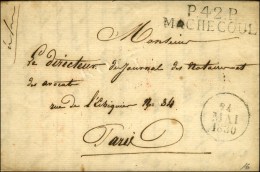 P.42.P.
MACHECOUL
Monsieur
Le directeur du Journal des Notaires et
des avocats
rue de l'Echiquier No 34
Paris
24
MAI
1830